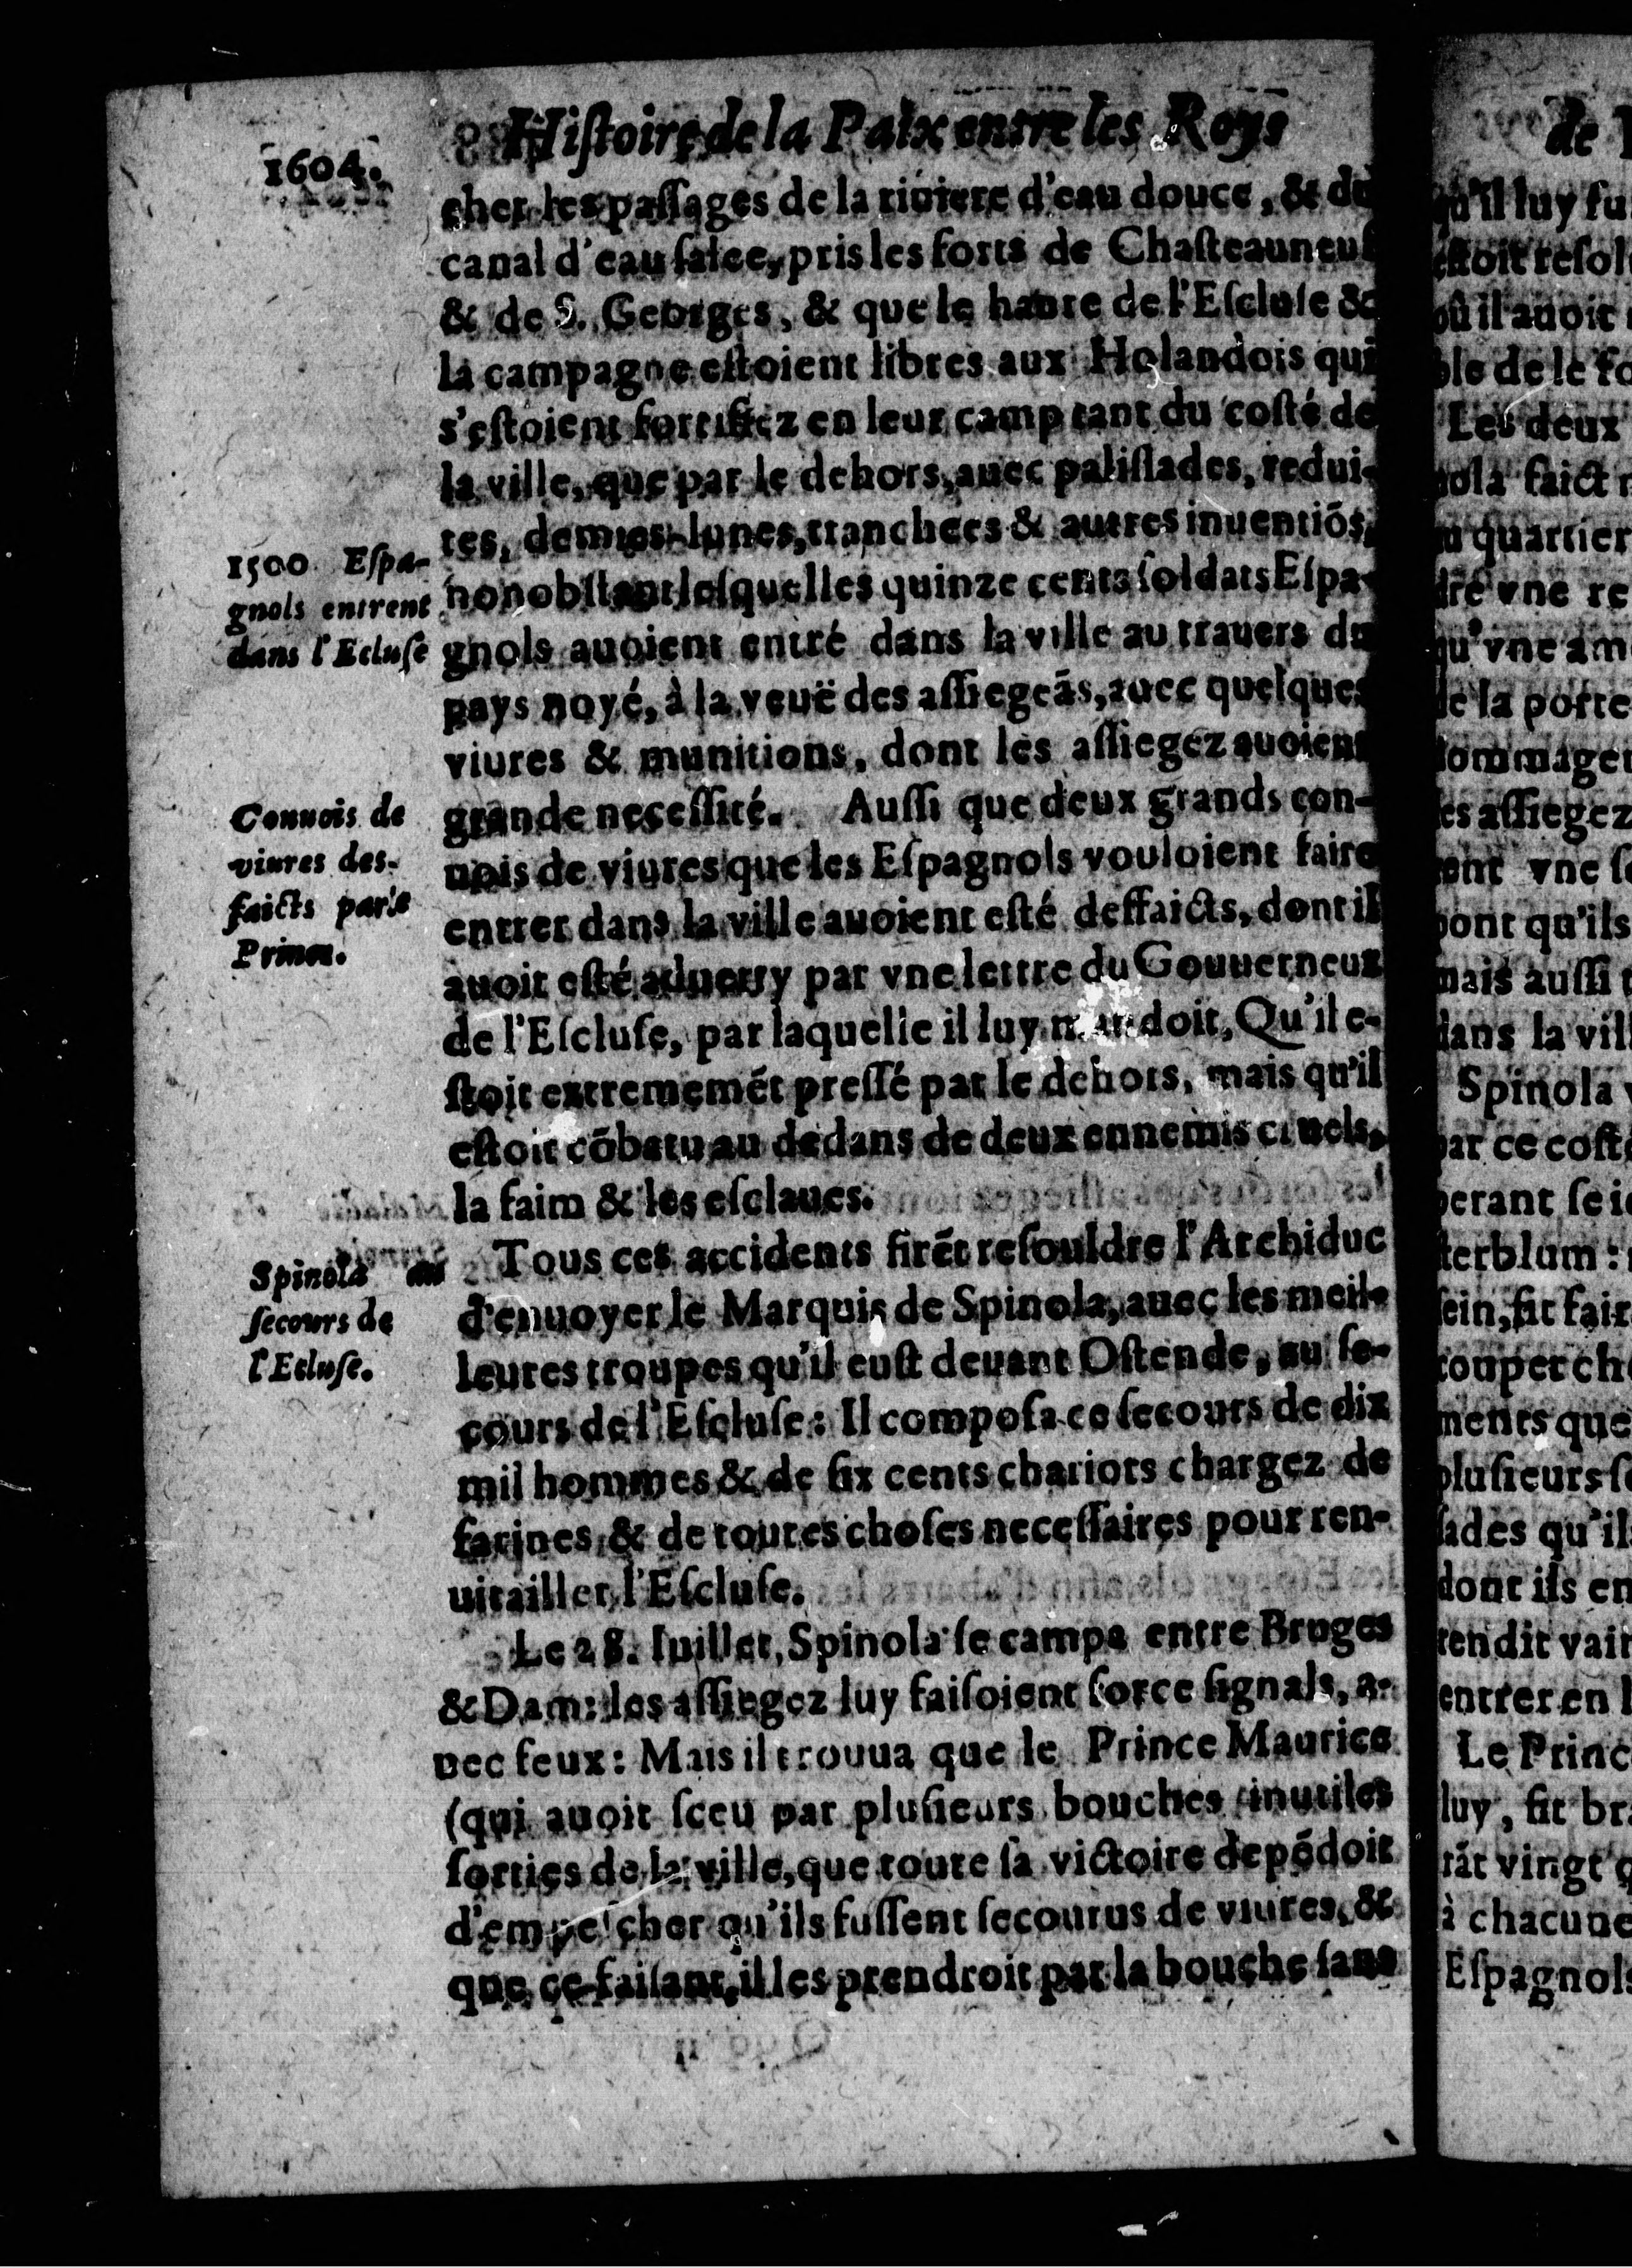 Hiſtoire de la Paix entre les Roys
1604.
cher les paſſages de la riuiere d'eau douce, & du
canal d'eau ſalee, pris les forts de Chaſteauneuf
& de S. Georges, & que le haure de l'Eſcluſe &
la campagne eſtoient libres aux Holandois qui
s'eſtoient fortifiez en leur camp tant du coſté de
la ville, que par le dehors, auec paliſſades, redui-
tes, demies-lunes, tranchees & autres inuentiõs,
nonobſtant leſquelles quinze cents ſoldats Eſpa-
gnols auoient entré dans la ville au trauers du
pays noyé, à la veuë des aſſiegeãs, auec quelques
viures & munitions, dont les aſſiegez auoient
grande neceſſité. Auſſi que deux grands con-
uois de viures que les Eſpagnols vouloient faire
entrer dans la ville auoient eſté deffaicts, dont il
auoit eſté aduerty par vne lettre du Gouuerneur
de l'Eſcluſe, par laquelle il luy mandoit, Qu'il e-
ſtoit extrememẽt preſſé par le dehors, mais qu'il
eſtoit cõbatu au dedans de deux ennemis cruels,
la faim & les eſclaues.
Tous ces accidents firẽt reſouldre l'Archiduc
d'enuoyer le Marquis de Spinola, auec les meil-
leures troupes qu'il euſt deuant Oſtende, au ſe-
cours de l'Eſcluſe: Il compoſa ce ſecours de dix
mil hommes & de ſix cents chariots chargez de
farines & de toutes choſes neceſſaires pour ren-
uitailler l'Eſcluſe.
Le 28. Iuillet, Spinola ſe campa entre Bruges
& Dam: les aſſiegez luy faiſoient force ſignals, a-
uec feux: Mais il trouua que le Prince Maurice
(qui auoit ſceu par pluſieurs bouches inutiles
ſorties de la ville, que toute ſa victoire depẽdoit
d'empeſcher qu'ils fuſſent ſecourus de viures, &
que ce faiſant, il les prendroit par la bouche ſans
1500 Eſpa-
gnols entrent
dans l'Ecluſe
Conuois de
viures des-
faicts par le
Prince.
Spinola au
ſecours de
l'Ecluſe.
de
qu'il luy
eſtoit
où il auoit
ble de le
Les deux
nola faict
quartier
dre vne
qu'vne
de la porte
les aſſiegez
rent vne
pont qu'ils
mais auſſi
dans la
Spinola
par ce
perant ſe
ſein, fit
couper
ments que
pluſieurs
ſades qu'ils
dont ils
rendit
entrer en
Le
luy, fit
rãt vingt
à chacune
Eſpagnols